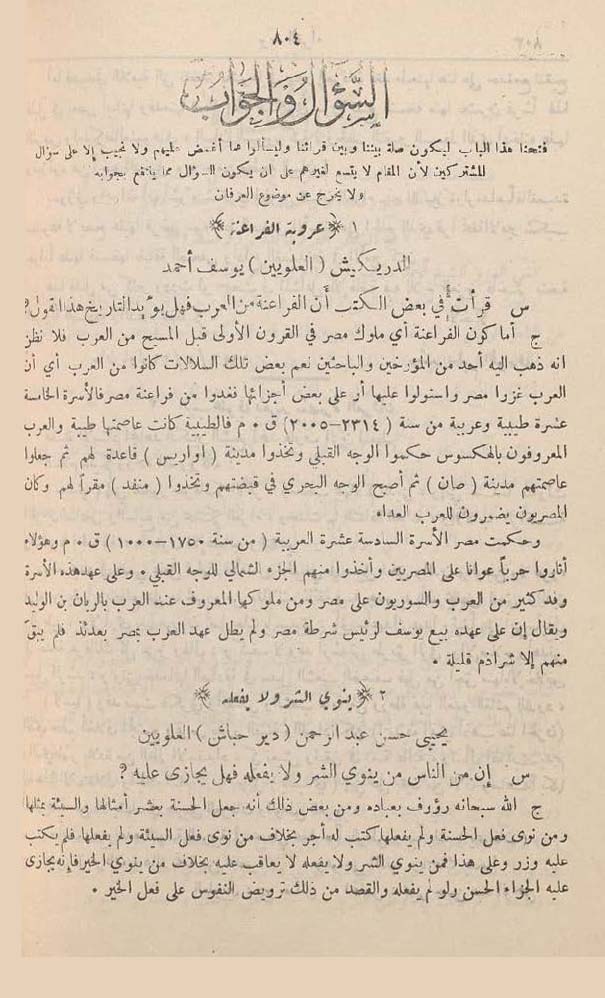 ٨٠٤
السؤال والجواب
فتحنا هذا الباب ليكون صلة بيننا وبين قرائنا وليسألوا عما أغمض عليهم ولا نجيب إلا على سؤال
المشتركين لأن المقام لا يتسع لغيرهم على ان يكون السؤال مما ينتفع بجوابه
ولا يخرج عن موضوع العرفان
١ ﴿ عروبة الفراعنة ﴾
الدريكيش ( العلويين ) يوسف أحمد
س قرأت في بعض الكتب أن الفراعنة من العرب فهل يؤيد التاريخ هذا القول؟
ج أما كون الفراعنة أي ملوك مصر في القرون الأولى قبل المسيح من العرب فلا نظن
انه ذهب اليه أحد من المؤرخين والباحثين نعم بعض تلك السلالات كانوا من العرب أي أن
العرب غزوا مصر واستولوا عليها أو على بعض أجزائها فغدوا من فراعنة مصر فالأسرة الخامسة
عشرة طيبية وعربية من سنة ( ٢٣١٤-٢٠٠٥ ) ق ٠ م فالطيبية كانت عاصمتها طيبة والعرب
المعروفون بالهكسوس حكموا الوجه القبلي وتخذوا مدينة ( اواريس ) قاعدة لهم ثم جعلوا
عاصمتهم مدينة ( صان ) ثم أصبح الوجه البحري في قبضتهم وتخذوا ( منفد ) مقراً لهم وكان
المصريون يضمرون للعرب العداء
وحكمت مصر الأسرة السادسة عشرة العربية ( من سنة ١٧٥٠-١٠٠٠ ) ق ٠ م وهؤلاء
أثاروا حرباً عوانا على المصريين وأخذوا منهم الجزء الشمالي للوجه القبلي ٠ وعلى عهد هذه الأسرة
وفد كثير من العرب والسوريون على مصر ومن ملوكها المعروف عند العرب بالريان بن الوليد
ويقال إن على عهده بيع يوسف لرئيس شرطة مصر ولم يطل عهد العرب بمصر بعدئذ فلم يبق
منهم إلا شراذم قليلة ٠
٢ ﴿ ينوي الشر ولا يفعله ﴾
يحيى حسن عبد الرحمن ( دير حباش ) العلويين
س إن من الناس من ينوي الشر ولا يفعله فهل يجازى عليه ?
ج الله سبحانه رؤوف بعباده ومن بعض ذلك أنه جعل الحسنة بعشر أمثالها والسيئة بمثلها
ومن نوى فعل الحسنة ولم يفعلها كتب له أجر بخلاف من نوى فعل السيئة ولم يفعلها فلم يكتب
عليه وزر وعلى هذا فمن ينوي الشر ولا يفعله لا يعاقب عليه بخلاف من ينوي الخير فإنه يجازى
عليه الجزاء الحسن ولو لم يفعله والقصد من ذلك ترويض النفوس على فعل الخير ٠